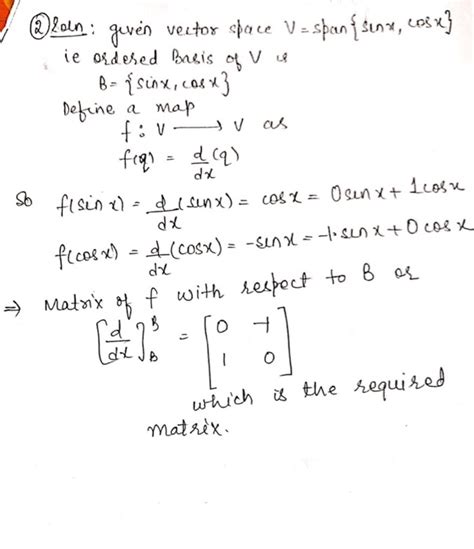 ② Soln: given vector space V = span{sinx, cosx}
ie ordered Basis of V is
B = {sinx, cosx}
Define a map
f : V ⟶ V as
f(q) = d/dx (q)
So f(sin x) = d/dx (sinx) = cosx = 0 sinx + 1 cosx
f(cosx) = d/dx (cosx) = -sinx = -1·sinx + 0 cosx
⇒ Matrix of f with respect to B as
[d/dx]_B^B = [0 -1
1 0]
which is the required
matrix.